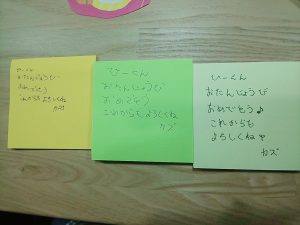 ひーくん
おたんじょうび
おめでとう
これからもよろしくね
カズ
ひーくん
おたんじょうび
おめでとう
これからもよろしくね
カズ
ひーくん
おたんじょうび
おめでとう♪
これからも
よろしくね
カズ